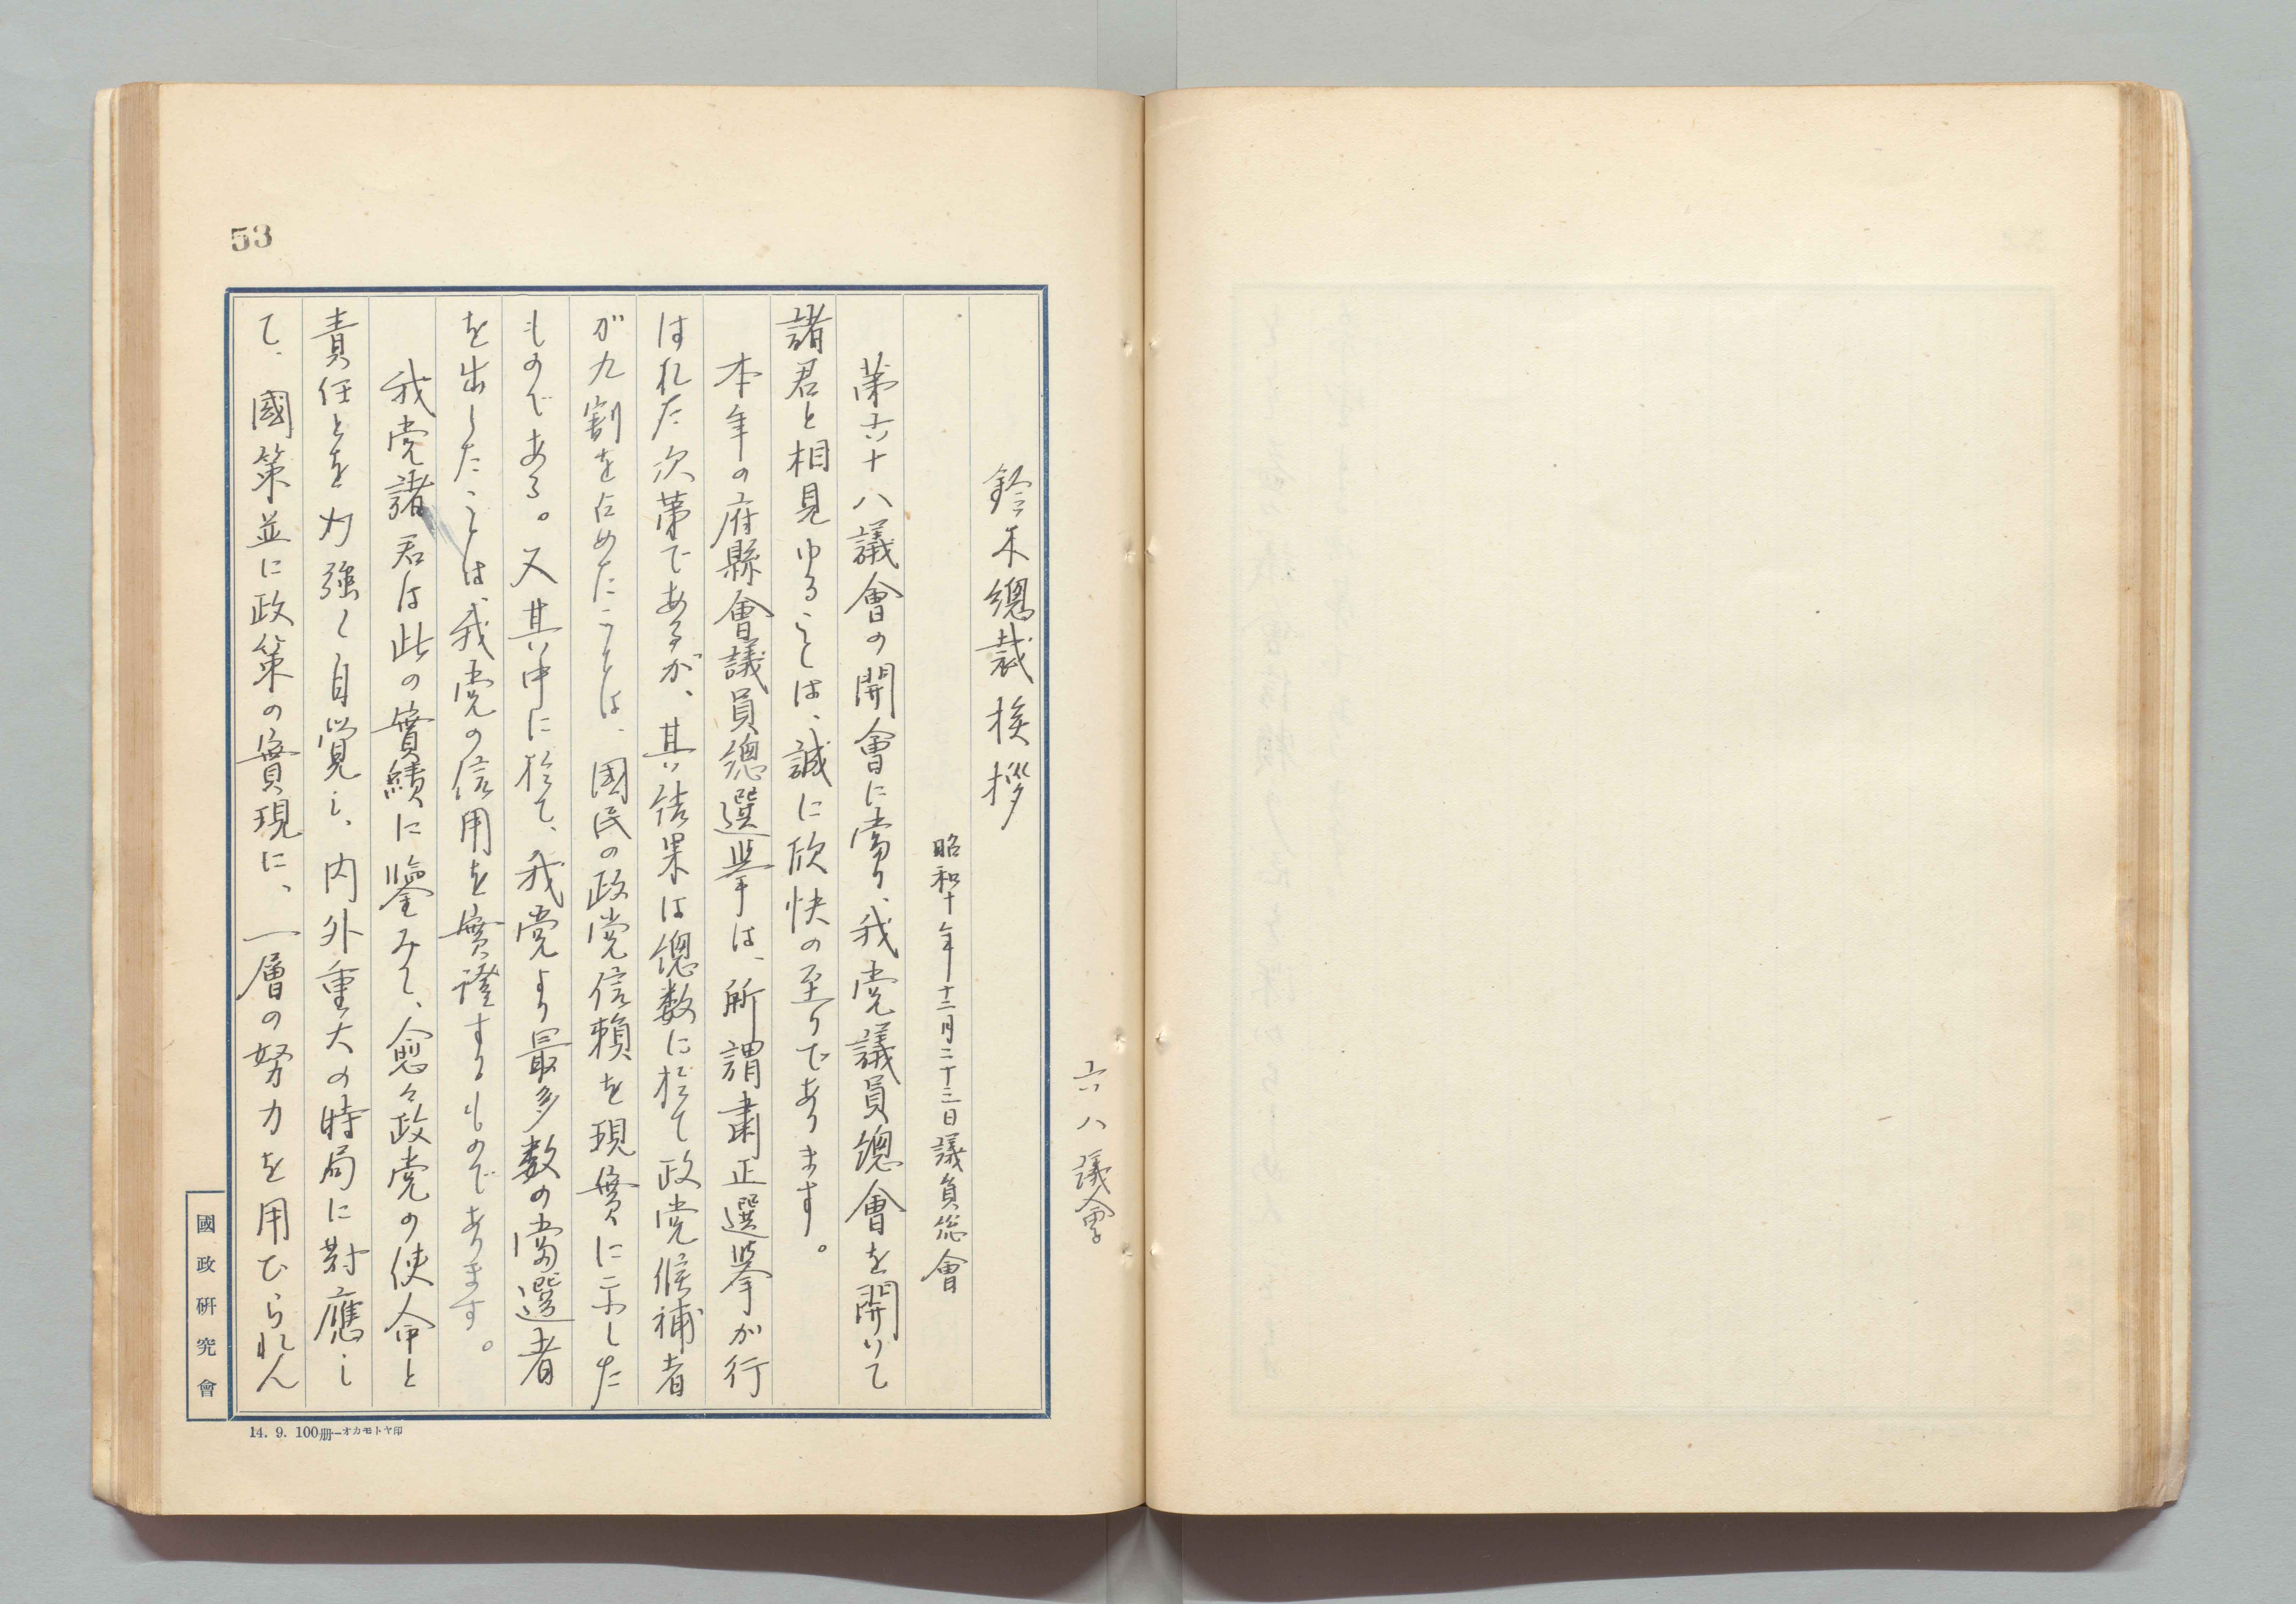 六八議會
鈴木總裁挨拶
昭和十年十二月二十三日議員総會
第六十八議會の開會に當り、我党議員總會を開いて
諸君と相見ゆることは、誠に欣快の至りであります。
本年の府縣會議員總選擧は、所謂肅正選擧が行
はれた次第であるが、其結果は總数に於て政党候補者
が九割を占めたことは、國民の政党信賴を現實に示した
ものである。又其中に於て、我党より最多数の當選者
を出したことは、我党の信用を實證するものであります。
我党諸君は此の實績に鑒みて、愈々政党の使命と
責任とを力強く自覚し、内外重大の時局に對應し
て、國策並に政策の實現に、一層の努力を用ひられん
53
國政硏究會
14. 9. 100册—オカモトヤ印